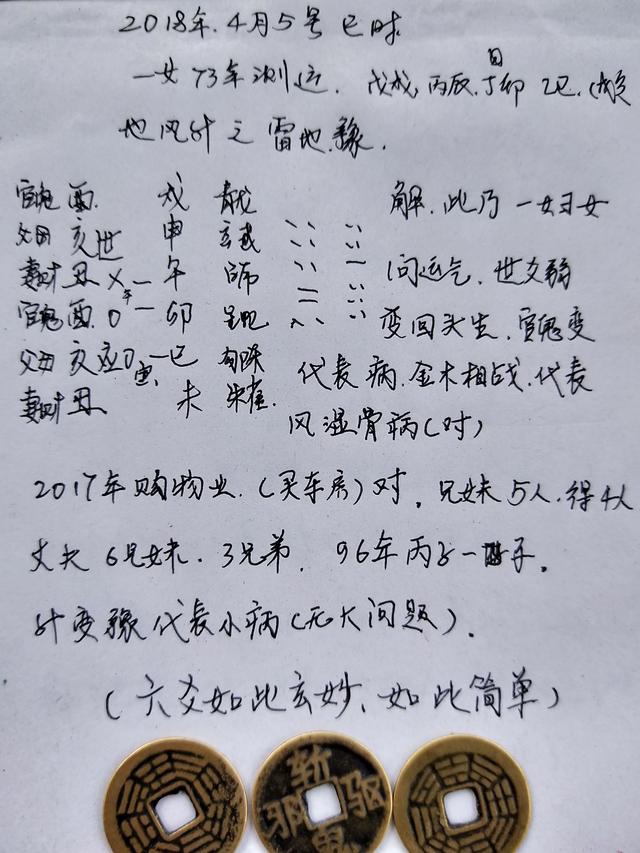 2018年.4月5号 巳时
一女73年测运. 戊戌 丙辰 丁卯 乙巳 (戌亥
日
地风升之雷地豫.
官鬼 酉. 戌 青龙
父母 亥世 申 玄武
妻财 丑 X 一 午
官鬼 酉. O 一 卯
父母 亥应O 一巳 勾陈
寅
妻财 丑 未 朱雀.
解.此乃一妇女
问运气.世爻弱
变回头生.官鬼变
代表病.金木相战.代表
风湿骨病(对)
2017年购物业.(买车房)对.兄妹5人.得4人
丈夫6兄妹.3兄弟.96年丙子一子.
升变豫代表小病(无大问题).
(六爻如此玄妙、如此简单)
斩
邪 驱
鬼